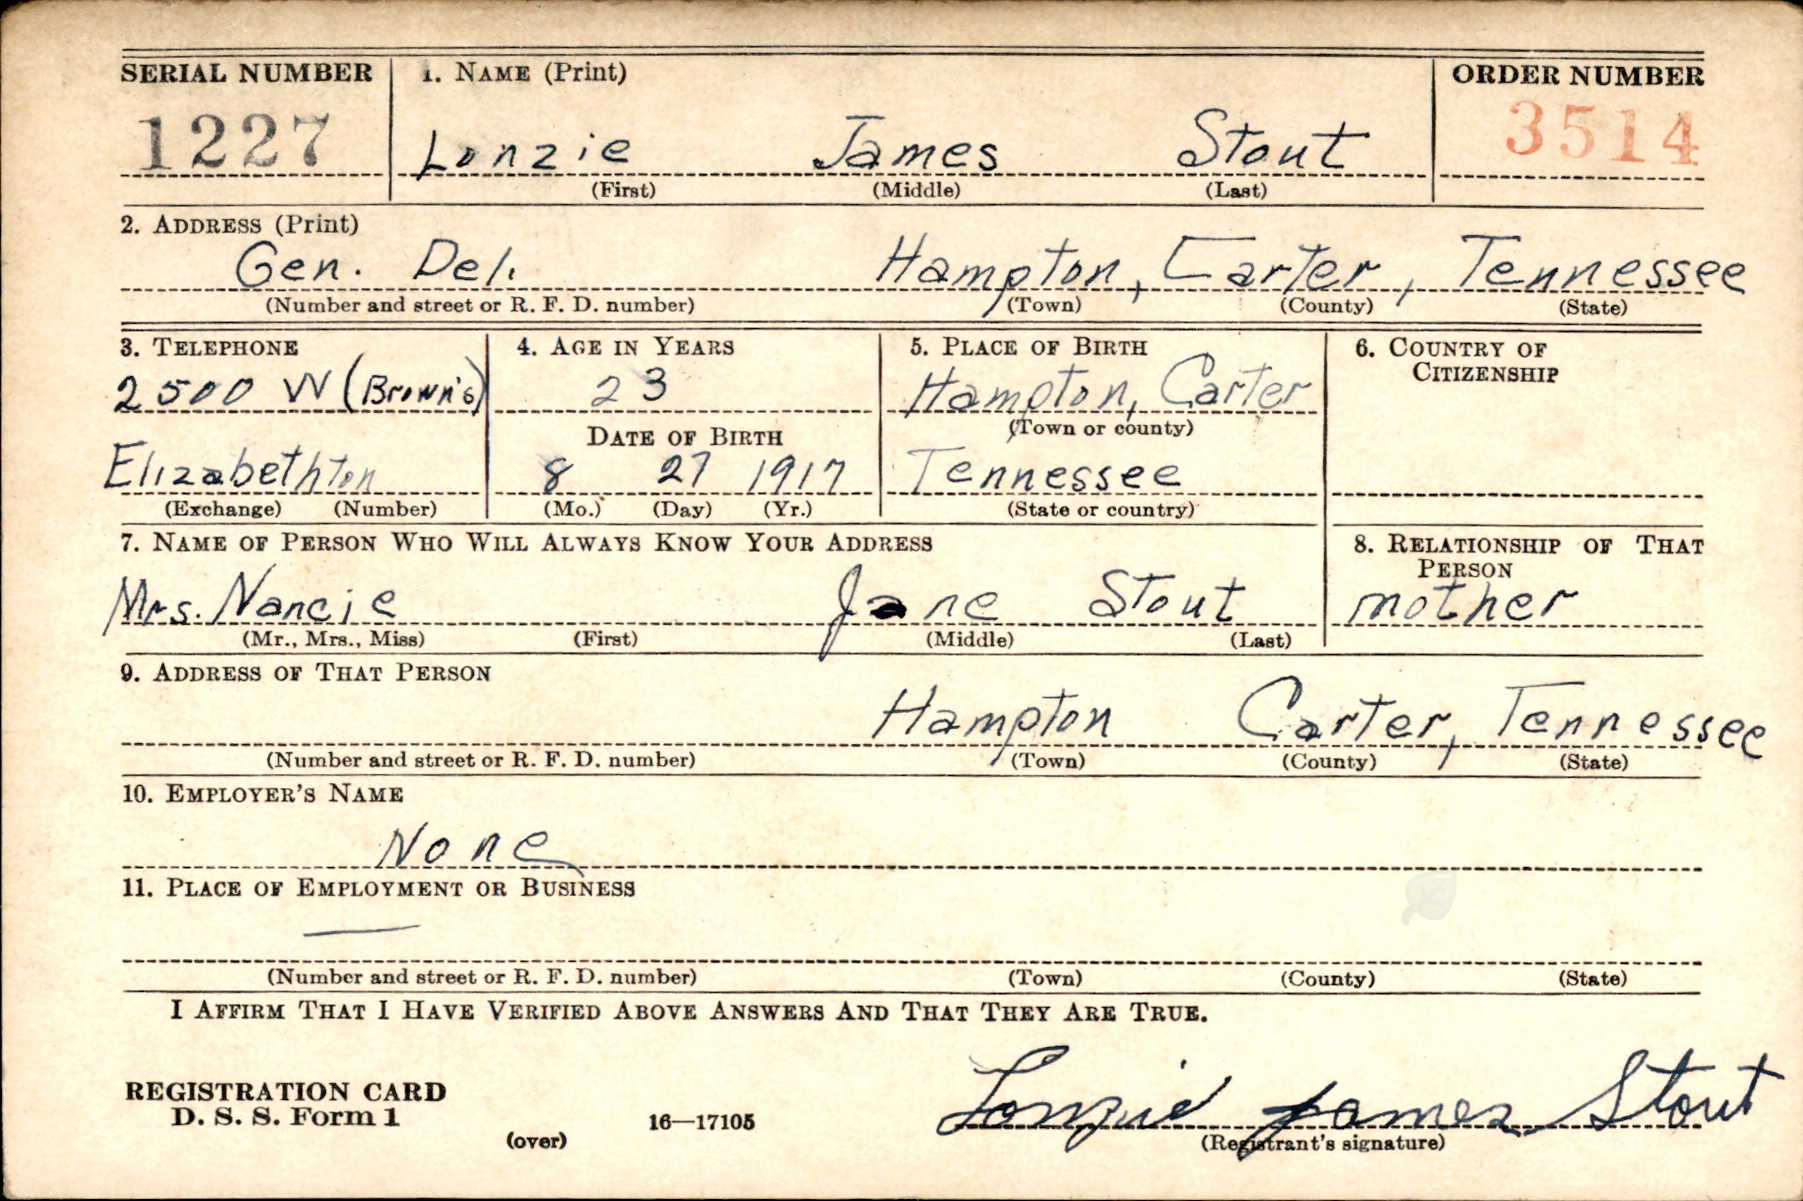 SERIAL NUMBER 1. NAME (Print) ORDER NUMBER
1227 Lonzie James Stout 3514
(First) (Middle) (Last)
2. ADDRESS (Print)
Gen. Del. Hampton, Carter, Tennessee
(Number and street or R. F. D. number) (Town) (County) (State)
3. TELEPHONE 4. AGE IN YEARS 5. PLACE OF BIRTH 6. COUNTRY OF
CITIZENSHIP
2500 W (Brown's) 23 Hampton, Carter
DATE OF BIRTH (Town or county)
Elizabethton 8 27 1917 Tennessee
(Exchange) (Number) (Mo.) (Day) (Yr.) (State or country)
7. NAME OF PERSON WHO WILL ALWAYS KNOW YOUR ADDRESS 8. RELATIONSHIP OF THAT
PERSON
Mrs. Nancie Jane Stout mother
(Mr., Mrs., Miss) (First) (Middle) (Last)
9. ADDRESS OF THAT PERSON
Hampton Carter, Tennessee
(Number and street or R. F. D. number) (Town) (County) (State)
10. EMPLOYER'S NAME
None
11. PLACE OF EMPLOYMENT OR BUSINESS
—
(Number and street or R. F. D. number) (Town) (County) (State)
I AFFIRM THAT I HAVE VERIFIED ABOVE ANSWERS AND THAT THEY ARE TRUE.
REGISTRATION CARD
D. S. S. Form 1
(over) 16—17105 Lonzie James Stout
(Registrant's signature)